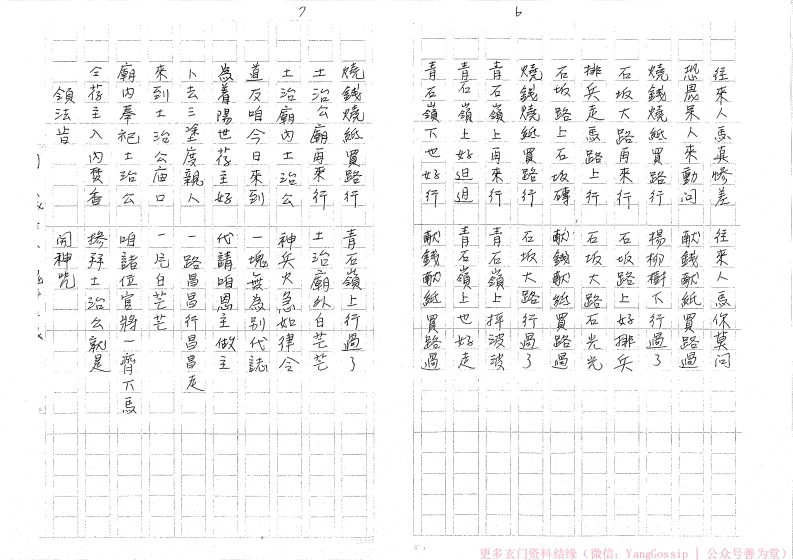 6
往來人馬真慘差　往來人馬你莫问
恐畏呆人來動问　献錢献紙買路過
燒錢燒紙買路行　楊柳樹下行過了
石坂大路再來行　石坂路上好排兵
排兵走馬路上行　石坂大路石光光
石坂路上石坂磚　献錢献紙買路過
燒錢燒紙買路行　石坂大路行過了
青石嶺上再來行　青石嶺上抨波波
青石嶺上好迫迫　青石嶺上也好走
青石嶺下也好行　献錢献紙買路過
7
燒錢燒紙買路行　青石嶺上行過了
土治公廟再來行　土治廟外白茫茫
土治廟內土治公　神兵火急如律令
道友咱今日來到　一塊無為別代誌
為着陽世荐主好　代請咱恩主做主
卜去三塗度親人　一路昌昌行昌昌走
來到土治公庙口　一完白茫茫
廟內奉祀土治公　咱諸位官將一齊下馬
仝荐主入內焚香　摻拜土治公就是
領法旨　開神咒
更多玄门资料结缘（微信：YangGossip | 公众号善为堂）